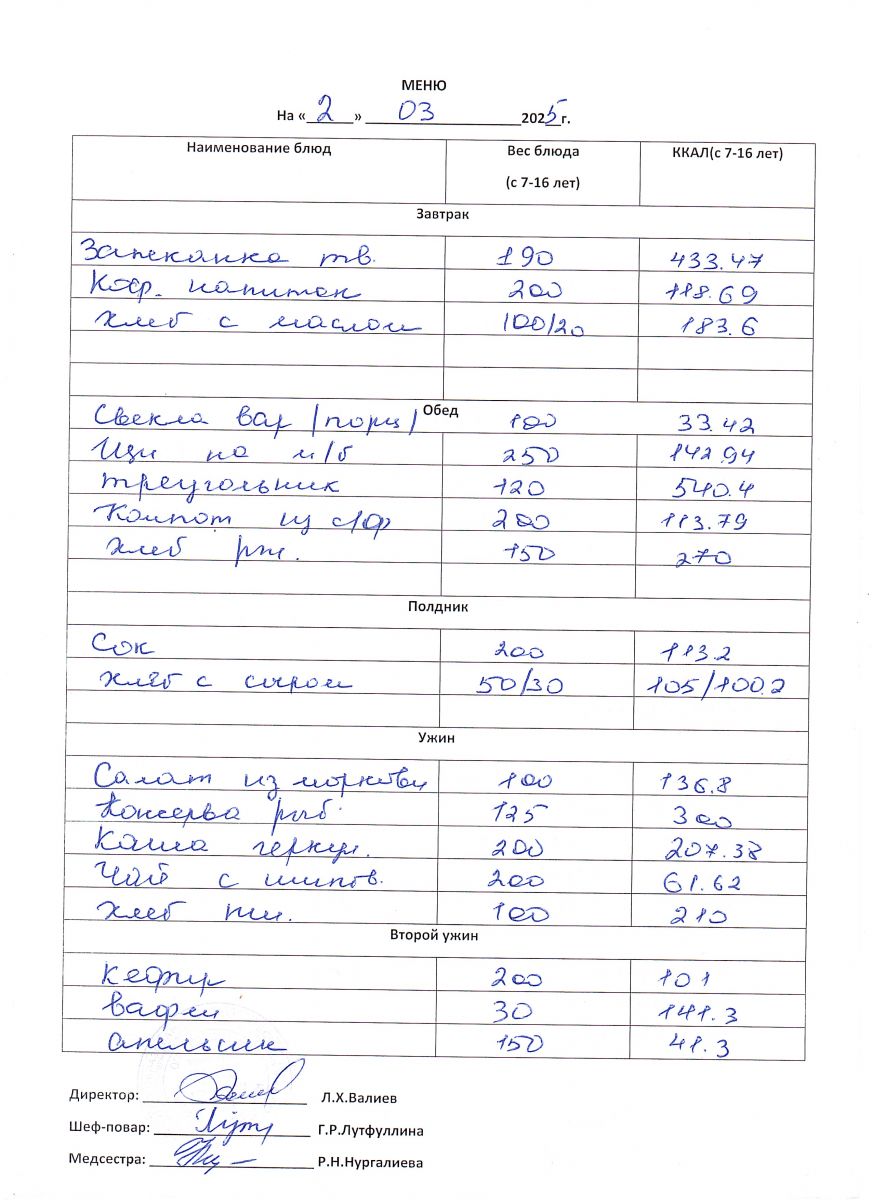 МЕНЮ
На «2» 03 2025 г.
Наименование блюд Вес блюда (с 7-16 лет) ККАЛ(с 7-16 лет)
Завтрак
Запеканка тв. 190 433.47
Коф. напиток 200 118.69
Хлеб с маслом 100/20 183.6
Обед
Свекла вар /порц/ 100 33.42
Щи на м/б 250 142.94
треугольник 120 540.4
Компот из с/ф 200 113.79
Хлеб рж. 150 270
Полдник
Сок 200 113.2
хлеб с сыром 50/30 105/100.2
Ужин
Салат из моркови 100 136.8
Консерва рыб. 125 300
Каша геркул. 200 207.38
Чай с шипов. 200 61.62
Хлеб пш. 100 210
Второй ужин
кефир 200 101
вафли 30 141.3
апельсин 150 41.3
Директор: Л.Х.Валиев
Шеф-повар: Г.Р.Лутфуллина
Медсестра: Р.Н.Нургалиева